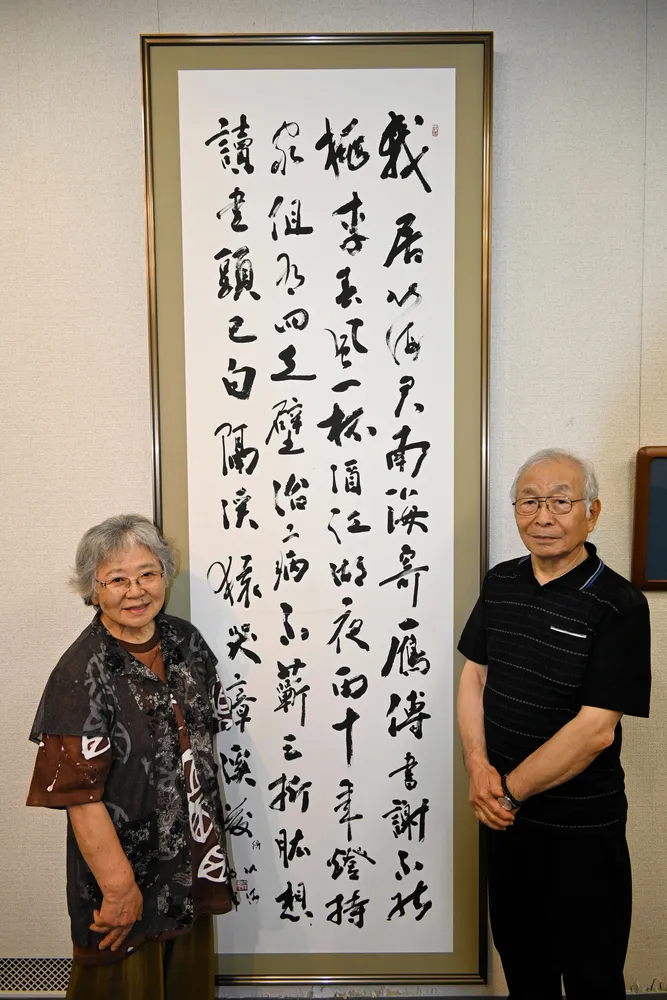 我居北海君南海寄雁傳書謝不能
桃李春風一杯酒江湖夜雨十年燈持
家但有四立壁治病不蘄三折肱想
讀書頭已白隔溪猿哭瘴溪藤